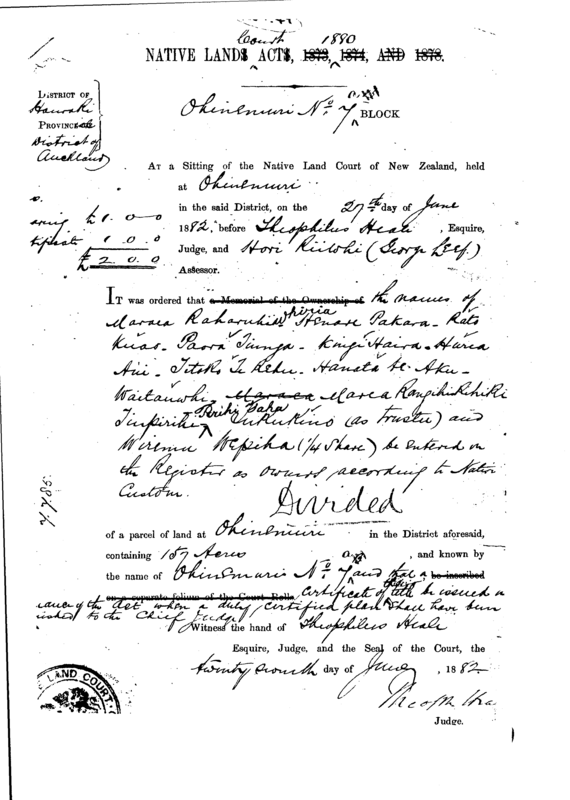 Court 1880
NATIVE LANDS ACTS, 1873, 1874, AND 1878.
DISTRICT OF
Hauraki
PROVINCE
District of
Auckland
Ohinemuri No. 7 BLOCK
AT a Sitting of the Native Land Court of New Zealand, held
at Ohinemuri
in the said District, on the 27th day of June
1882, before Theophilus Heale, Esquire,
Judge, and Hori Riiwhi (George Leef)
Assessor.
£1.0.0
1.0.0
£2.0.0
IT was ordered that a Memorial of the Ownership of the names of
Maraea Henare Pakara - Rata
Paora Tiunga - Kingi Haira - Haria
Titoko Te Rehu - Hanata te Aku
Maraea Marea
Pirihi Taha
Tukukino (as trustee) and
Wiremu Wepiha (1/4 Share) be entered on
the Register as owners according to Native
Custom.
Divided
of a parcel of land at Ohinemuri in the District aforesaid,
containing 157 Acres, and known by
the name of Ohinemuri No. 7 and that a be inscribed
on a separate folium of the Court Rolls Certificate of title be issued in
the Act when a duly certified plan shall have been
to the Chief Judge
Witness the hand of Theophilus Heale
Esquire, Judge, and the Seal of the Court, the
twenty seventh day of June, 1882.
Theoph Hea
Judge.
LAND COURT